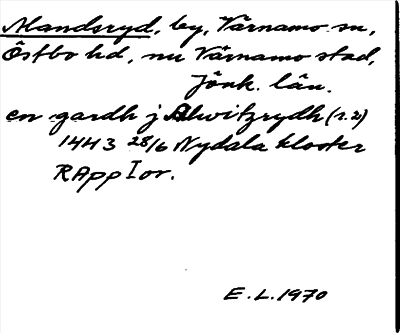 Alandsryd, by, Värnamo sn,
Östbo hd, nu Värnamo stad,
Jönk. län.
en gardh j Alwitzrydh (r.2)
1443 28/6 Nydala kloster
RAppIor.
E.L.1970